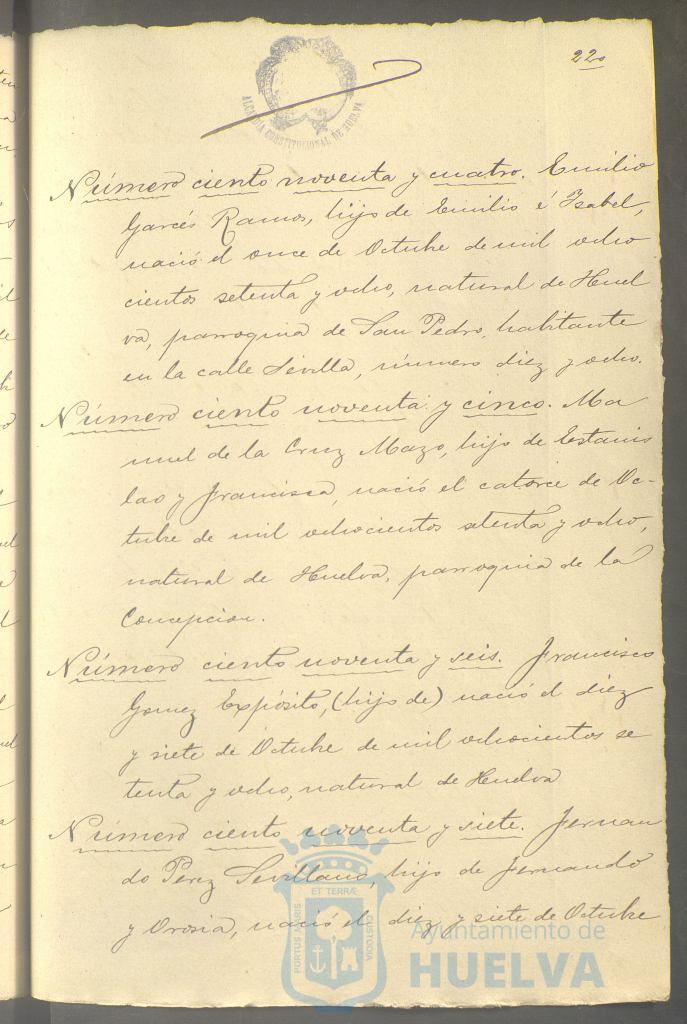 22
ALCALDIA CONSTITUCIONAL DE HUELVA
Número ciento noventa y cuatro. Emilio
Garcés Ramos, hijo de Emilio é Isabel,
nació el once de Octubre de mil ocho
cientos setenta y ocho, natural de Huel
va, parroquia de San Pedro, habitante
en la calle Sevilla, número diez y ocho.
Número ciento noventa y cinco. Ma
nuel de la Cruz Mazo, hijo de Estanis
lao y Francisca, nació el catorce de Oc-
tubre de mil ochocientos setenta y ocho,
natural de Huelva, parroquia de la
Concepcion.
Número ciento noventa y seis. Francisco
Gomez Expósito, (hijo de) nació el diez
y siete de Octubre de mil ochocientos se
tenta y ocho, natural de Huelva
Número ciento noventa y siete. Fernan
do Perez Sevillano, hijo de Fernando
y Orosia, nació el diez y siete de Octubre
PORTUS MARIS ET TERRÆ CUSTODIA
Ayuntamiento de
HUELVA